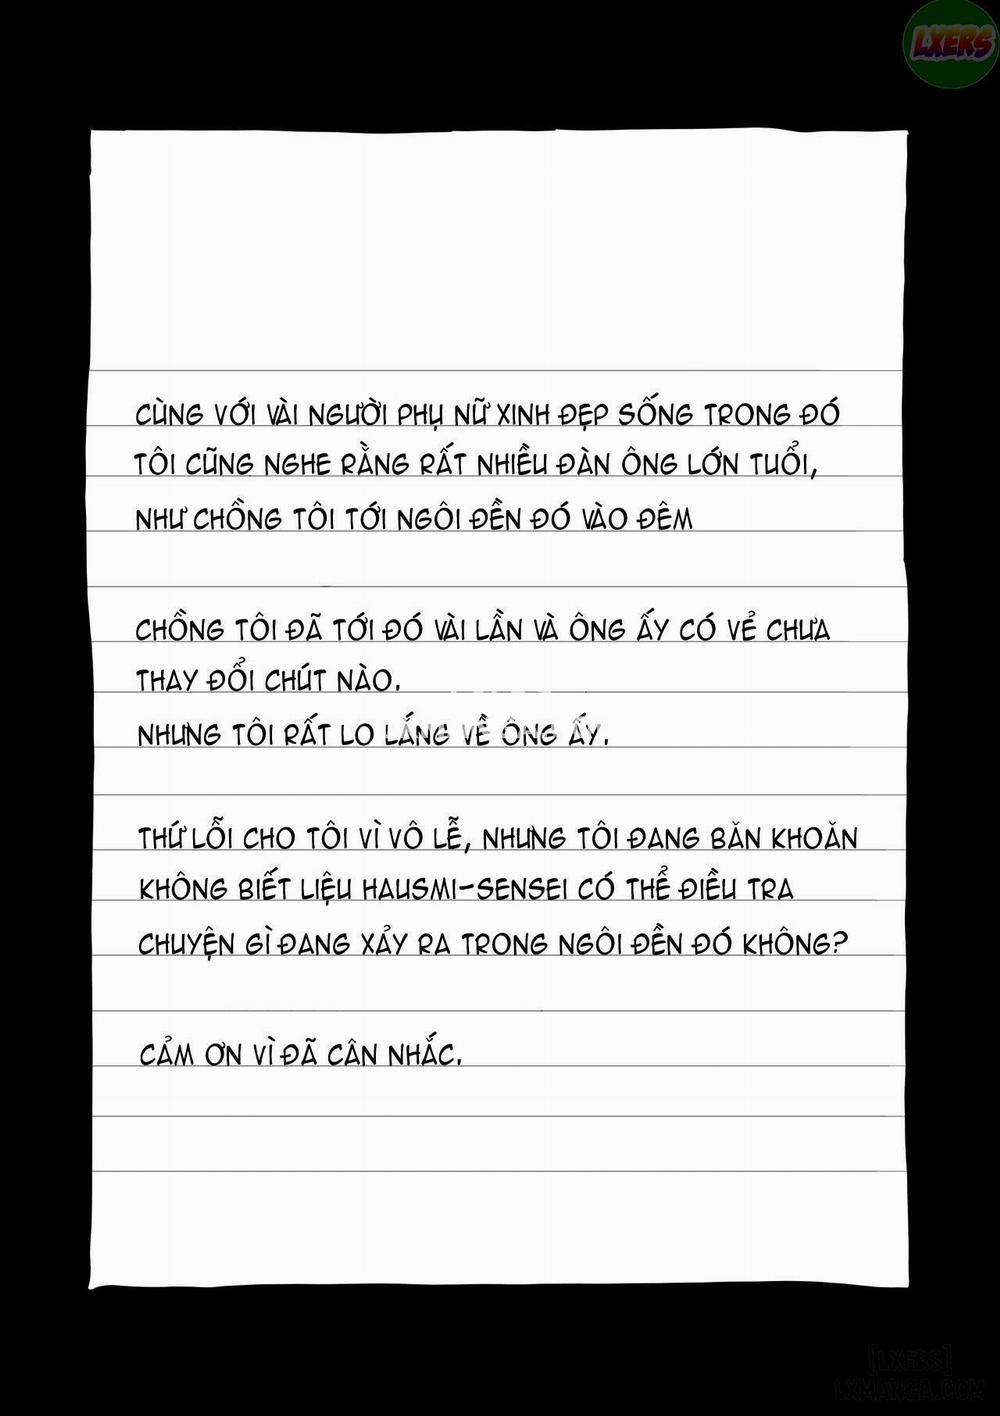 LXERS
CÙNG VỚI VÀI NGƯỜI PHỤ NỮ XINH ĐẸP SỐNG TRONG ĐÓ
TÔI CŨNG NGHE RẰNG RẤT NHIỀU ĐÀN ÔNG LỚN TUỔI,
NHƯ CHỒNG TÔI TỚI NGÔI ĐỀN ĐÓ VÀO ĐÊM
CHỒNG TÔI ĐÃ TỚI ĐÓ VÀI LẦN VÀ ÔNG ẤY CÓ VẺ CHƯA
THAY ĐỔI CHÚT NÀO.
NHƯNG TÔI RẤT LO LẮNG VỀ ÔNG ẤY.
THỨ LỖI CHO TÔI VÌ VÔ LỄ, NHƯNG TÔI ĐANG BĂN KHOĂN
KHÔNG BIẾT LIỆU HAUSMI-SENSEI CÓ THỂ ĐIỀU TRA
CHUYỆN GÌ ĐANG XẢY RA TRONG NGÔI ĐỀN ĐÓ KHÔNG?
CẢM ƠN VÌ ĐÃ CÂN NHẮC.
[LXERS]
LXMANGA.COM